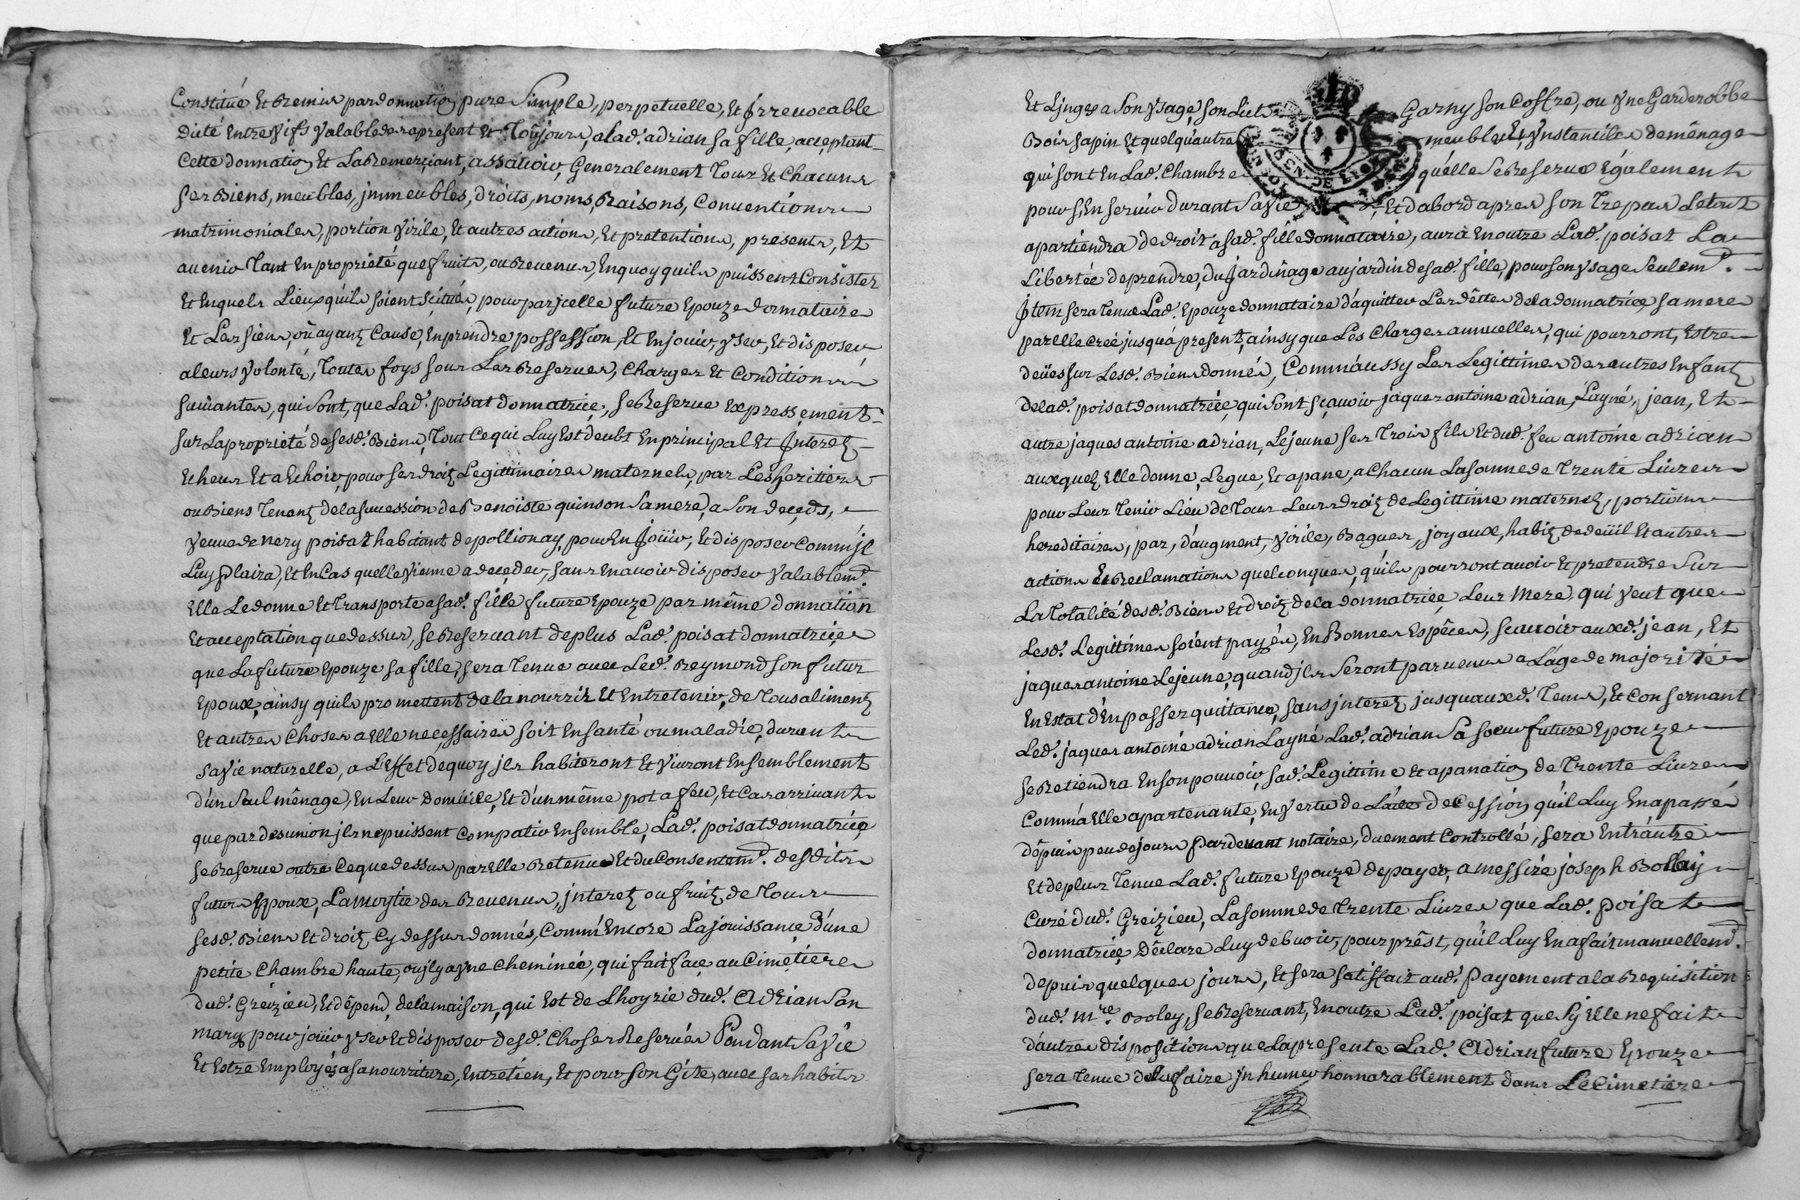 Constitué Et Remis par donnation pure Simple, perpetuelle, Et Irreuocable
dicté Entre vifs valable des apresent Et Toujours, a lad.e adrian sa fille, acceptant
Cette donnation Et La Remerçiant, assauoir, Generalement Tous Et Chacuns
ses Biens, meubles, jmmeubles, droits, noms, Raisons, Conuentions
matrimoniales, portion virile, Et autres actions, Et pretentions, presents, Et
auenir Tant En propriété que fruits, ou Reuenus, En quoy quils puissent Consister
Et En quels Lieux quils soient scitués, pour par jcelle future Epouze donnataire
Et Les siens, ou ayant Cause, En prendre possession, Et En jouir, vser, Et disposer,
a leurs volonté, Toutes foys sous Les Reserues, Charges Et Conditions
suiuantes, qui sont, que Lad.e poisat donnatrice, se Reserue Expressement
sur La propriété de sesd. Biens, Tout Ce qui Luy Est deubt En principal Et Interez
Echeus Et a Echoir, pour ses droiz Legittimaires maternels, par Les heritiers
ou Biens Tenanz de la succession de Benoiste quinson sa mere, a son deceds,
veuue de nery poisat habitant de pollionay, pour En Joüir, Et disposer Comm'jl
Luy plaira, Et En Cas quelle vienne a deceder, sans En auoir disposer valablemt.
Elle Le donne Et Transporte a sad.e fille future Epouze par même donnation
Et acceptation que dessus, se Reseruant de plus Lad.e poisat donnatrice
que La future Epouze sa fille, sera Tenue auec Led. Reymond son futur
Epoux, ainsy quils promettent de la nourrir Et Entretenir, de Tous alimentz
Et autres Choses a Elle necessaires soit En santé ou maladie, durant
sa vie naturelle, a L'effet de quoy jls habiteront Et viuront Ensemblement
d'un seul ménage, En Leur domicile, Et d'un même pot a feu, Et Cas arriuant
que par desunion jls ne puissent Compatir Ensemble, Lad.e poisat donnatrice
se Reserue outre Ce que dessus par Elle Retenue Et du Consentemt. desdits
futurs Epoux, La moytié des Reuenus, jnterez ou fruitz de Tous
sesd. Biens Et droiz Cy dessus donnés, Comm'Encore La jouissance d'une
petite Chambre haute, ou jl y a vne Cheminée, qui fait face au Cimetiere
dud. Greizieu, Et dépend, de la maison, qui Est de L'hoyrie dud. Adrian son
mary, pour jouir vser Et disposer desd. Choses Reserués Pendant sa vie
Et Estre Employés a sa nourriture, Entretien, Et pour son Gite, auec ses habits
Et Linges a Son vsage, son Lict Garny son Coffre, ou vne Garderobbe
Bois sapin Et quelqu'autre meubles Et vstanciles de ménage
qui sont En Lad.e Chambre qu'elle se Reserue Également
pour s'En seruir durant sa vie, Et d'abord apres son Trepas Le tout
apartiendra de droit a sad.e fille donnataire, aura En outre Lad.e poisat La
Libertée de prendre, du Jardinage au jardin de sad.e fille, pour son vsage seulemt.
Jtem sera Tenue Lad.e Epouze donnataire d'aquitter Les dêttes de la donnatrice, sa mere
par elle creé jusqu'a present, ainsy que Les Charges annuelles, qui pourront, Estre
deües sur Lesd. Biens donnés, Comm'aussy Les Legittimes des autres Enfantz
de lad.e poisat donnatrice, qui sont sçauoir jaques antoine adrian, L'ayné, jean, Et
autre jaques antoine adrian, Lejeune ses Trois fils Et dud. feu antoine adrian
auxquelz Elle donne, Legue, Et apane, a Chacun La somme de Trente Liures
pour Leur Tenir Lieu de Tous Leurs droiz de Legittime maternelz, portions
hereditaires, par, d'augment, virile, Bagues, joyaux, habiz de deüil Et autres
actions Et Reclamations quelconques, qu'ils pourront auoir Et pretendre sur
La Totalité desd. Biens Et droiz de la donnatrice, Leur mere, qui veut que
Lesd. Legittimes soient payés, En Bonnes Espêces, scauoir auxd. jean, Et
jaques antoine Lejeune, quand jls seront paruenus a L'age de majorité
En Estat d'En passer quitance, sans jnterez jusquauxd. Tems, Et Consernant
Led. jaques antoine adrian L'ayné Lad.e adrian sa soeur future Epouze
se Retiendra En son pouuoir, sad.e Legittime Et apanation de Trente Liures
Comm'a Elle apartenante, En vertu de L'acte de Cession qu'il Luy En a passé
dépuis peu de jours Pardeuant notaire, duement Controllé, sera Entr'autre
Et de plus Tenue Lad.e future Epouze de payer, a messire joseph Bolley
Curé dud. Greizieu, La somme de Trente Liures que Lad.e poisat
donnatrice Déclare Luy debuoir, pour prêst, qu'il Luy En a fait manuellemt.
depuis quelques jours, Et sera satisfait aud. Payement a la Requisition
dud. Mre. Boley, se Reseruant, En outre Lad.e poisat que sy Elle ne fait
d'autres dispositions que La presente Lad.e Adrian future Epouze
sera Tenue de La faire jnhumer honnorablement dans Le Cimetiere